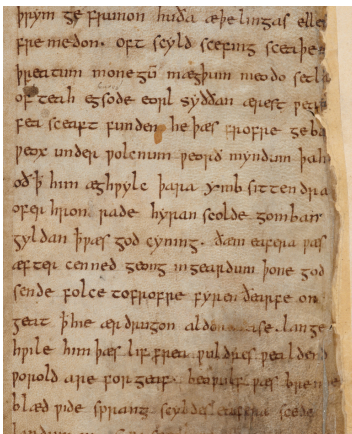 þrym ge frunon huða æþelingas elle
fre medon. oft scyld scefing sceaþe
þreatum monegū mægþum meodo setla
of teah egsode eorl syððan ærest
fea sceaft funden he þæs frofre geba
ƿeox under ƿolcnum ƿeorð myndum þah
oð ꝥ him æghƿylc þara ymb sittendra
ofer hron rade hyran scolde gomban
gyldan þæs god cyning. ðæm eafera ƿæs
æfter cenned geong in geardum þone god
sende folce tofrofre fyren ðearfe on
geat ꝥ hie ær drugon aldor ase. lange
hƿile him þæs lif frea ƿuldres ƿealdend
ƿorold are for geaf. beoƿulf ƿæs breme
blæd ƿide sprang scyldes eafera scede